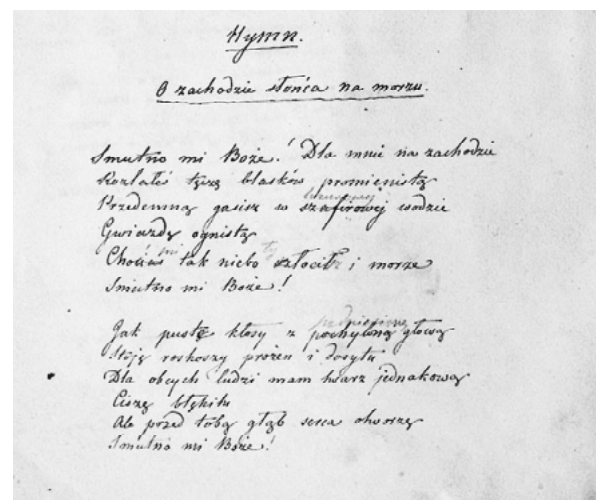 Hymn.
O zachodzie słońca na morzu.
Smutno mi Boże! Dla mnie na zachodzie
Rozlałeś tęczę blasków promienistą
Przedemną gasisz w szafirowej wodzie
Gwiazdę ognistą
Choć mi tak niebo ty złocisz i morze
Smutno mi Boże!
Jak puste kłosy z podniesioną głową
Stoję roskoszy prożen i dosytu
Dla obcych ludzi mam twarz jednakową
Ciszę błękitu
Ale przed tobą głąb serca otworzę
Smutno mi Boże!